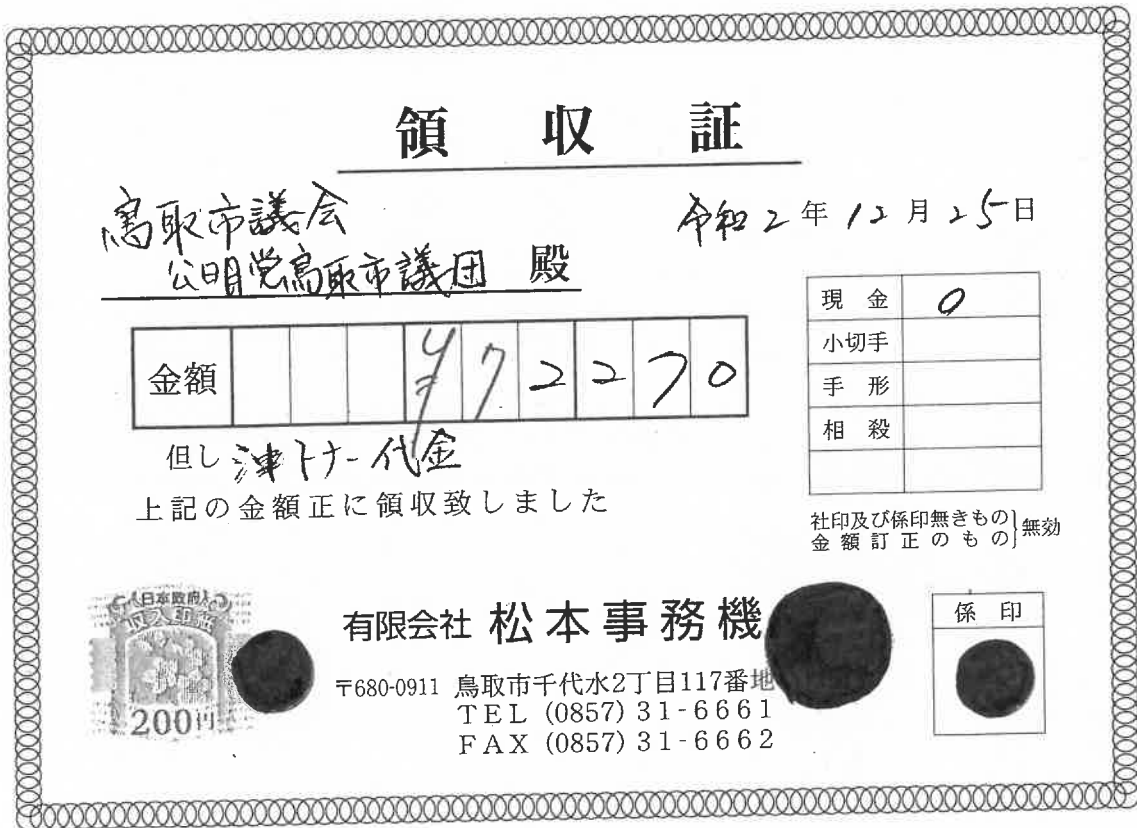 領収証
鳥取市議会
公明党鳥取市議団 殿
令和2年12月25日
金額 ¥72270
但し トナー代金
上記の金額正に領収致しました
現金 0
小切手
手形
相殺
社印及び係印無きもの
金額訂正のもの}無効
日本政府
収入印紙
200円
有限会社 松本事務機
〒680-0911 鳥取市千代水2丁目117番地
TEL (0857) 31-6661
FAX (0857) 31-6662
係印